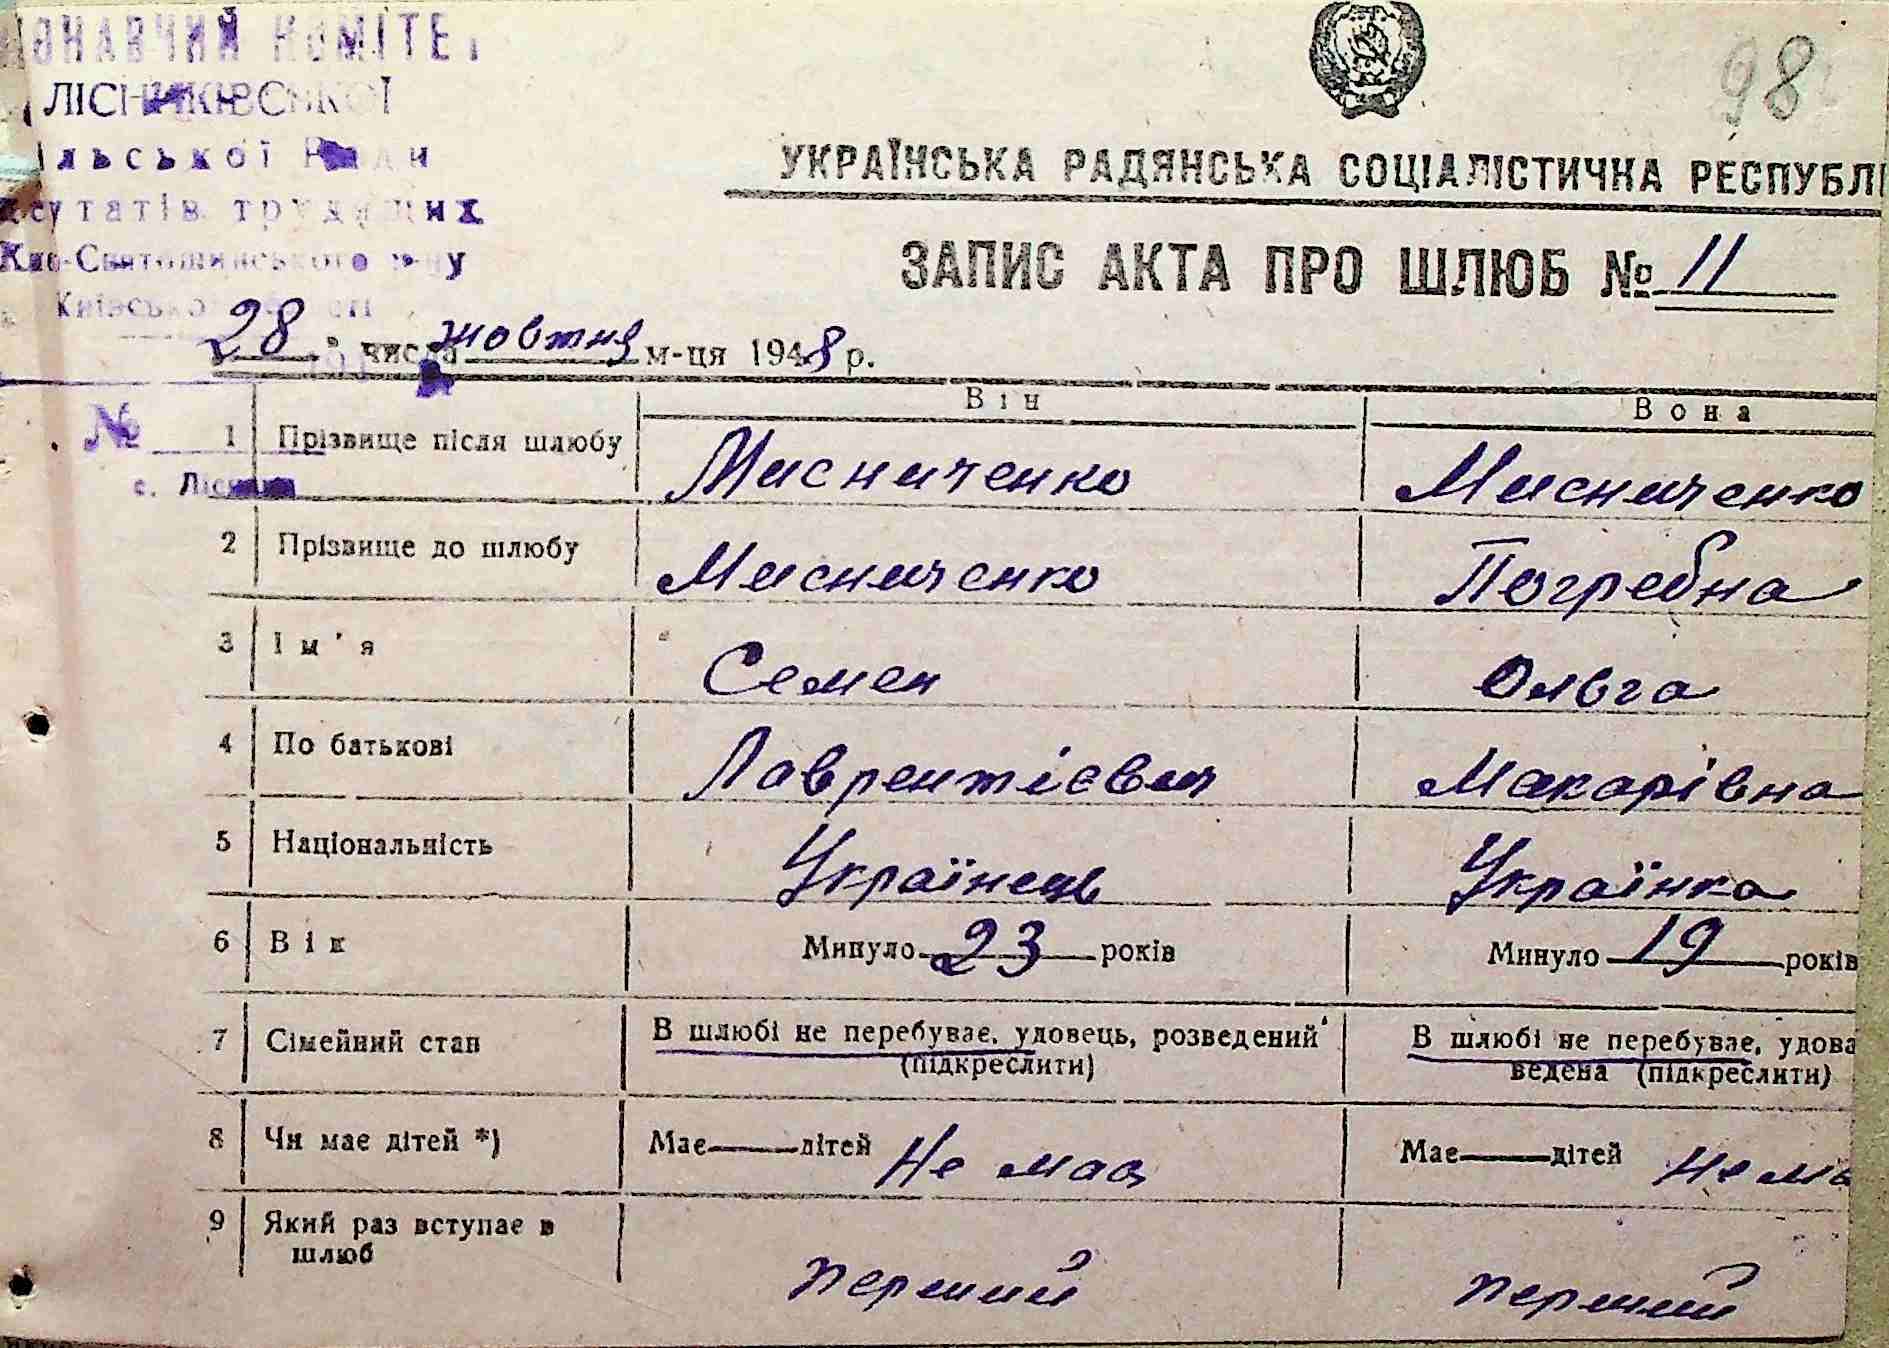 ОНАВЧИЙ КОМІТЕТ
ЛІСНИКІВСЬКОЇ
ільської Ради
депутатів трудящих
Києво-Святошинського р-ну
Київської області
98
УКРАЇНСЬКА РАДЯНСЬКА СОЦІАЛІСТИЧНА РЕСПУБЛІ
ЗАПИС АКТА ПРО ШЛЮБ № 11
28 " числа жовтня м-ця 1948 р.
Він Вона
№
с. Лісники
1 Прізвище після шлюбу Мисниченко Мисниченко
2 Прізвище до шлюбу Мисниченко Погребна
3 Ім'я Семен Ольга
4 По батькові Лаврентієвич Макарівна
5 Національність Українець Українка
6 Вік Минуло 23 років Минуло 19 років
7 Сімейний стан В шлюбі не перебуває, удовець, розведений В шлюбі не перебуває, удова
(підкреслити) ведена (підкреслити)
8 Чи має дітей *) Має дітей Не має Має дітей Не ма
9 Який раз вступає в
шлюб перший перший